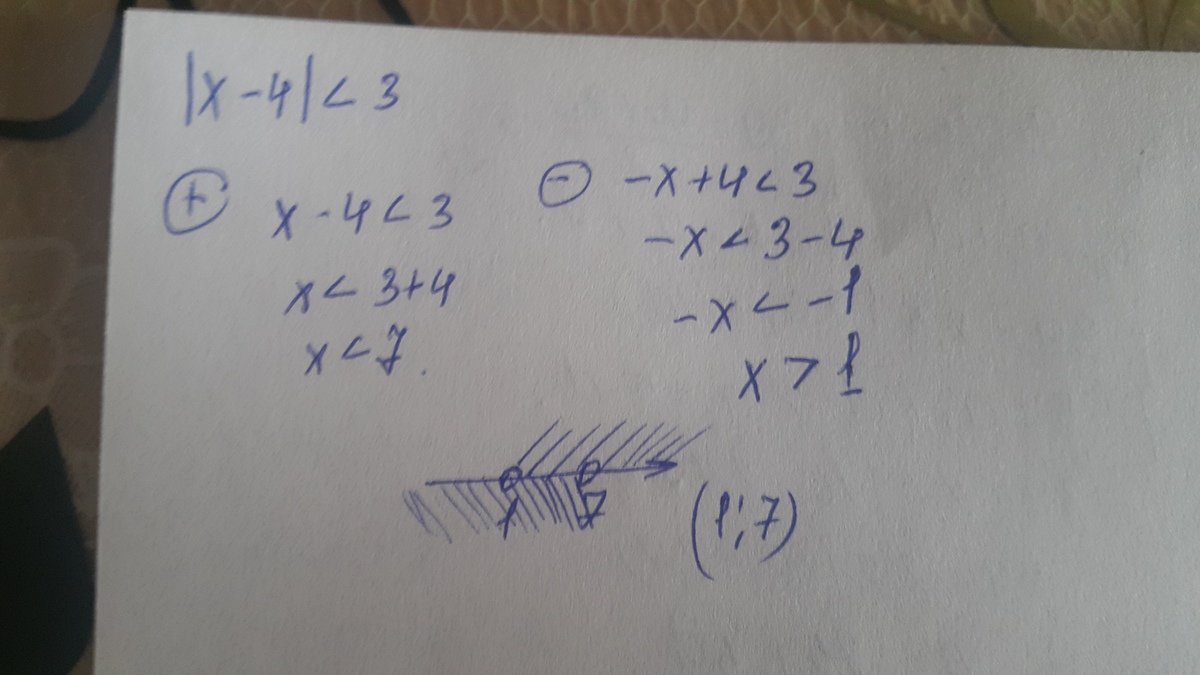 |x-4|<3
⊕ x-4<3
x<3+4
x<7.
⊖ -x+4<3
-x<3-4
-x<-1
x>1
1 7
(1;7)